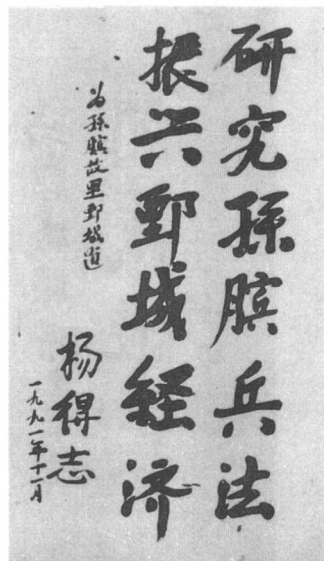 研究孫臏兵法
振兴鄄城经济
为孫臏故里鄄城道
杨得志
一九九一年十一月